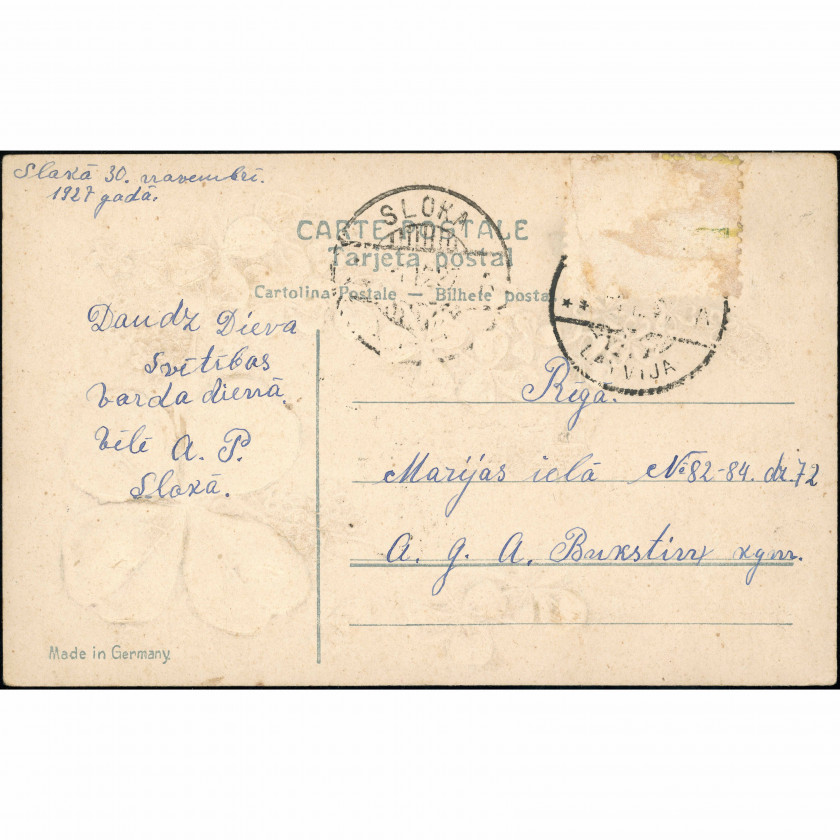 Slokā 30. novembrī.
1927 gadā.
CARTE POSTALE
Tarjeta postal
Cartolina Postale — Bilhete postal
SLOKA
LATVIJA
Daudz Dieva
Svētības
Varda dienā
Vēlē A. P.
Slokā.
Rīgā.
Marijas ielā № 82-84. dz. 72
A. g. A. Bukstiņ kgm.
Made in Germany.